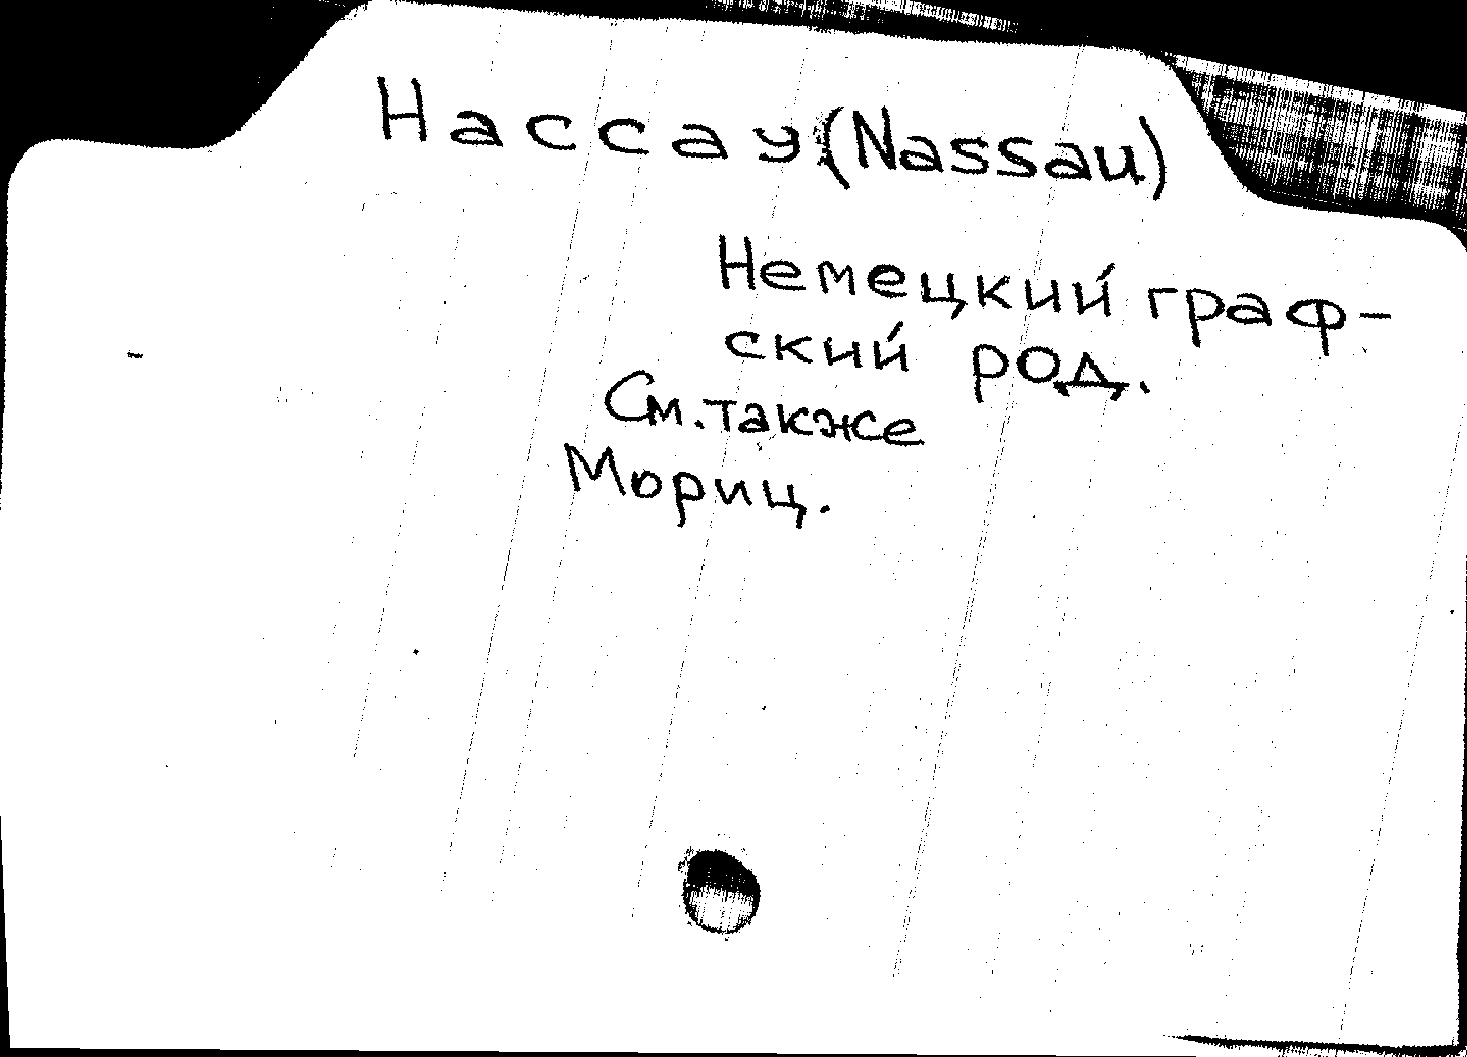 Нассау (Nassau)
Немецкий граф-
ский род.
См. также
Мориц.